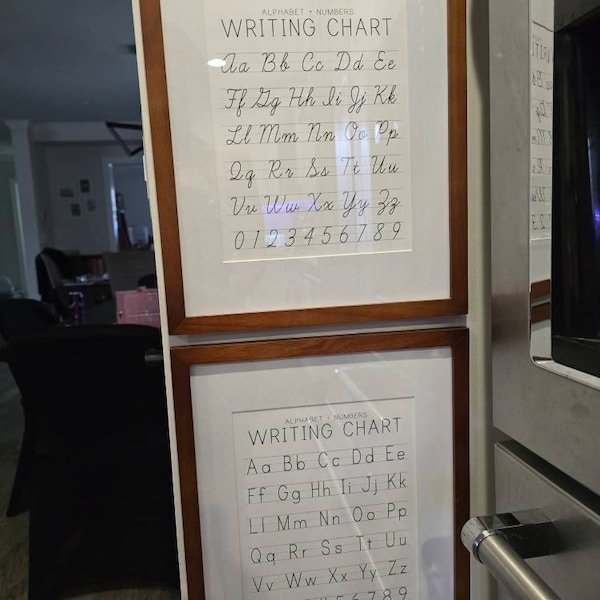 ALPHABET + NUMBERS
WRITING CHART
Aa Bb Cc Dd Ee
Ff Gg Hh Ii Jj Kk
Ll Mm Nn Oo Pp
Qq Rr Ss Tt Uu
Vv Ww Xx Yy Zz
0 1 2 3 4 5 6 7 8 9
ALPHABET + NUMBERS
WRITING CHART
Aa Bb Cc Dd Ee
Ff Gg Hh Ii Jj Kk
Ll Mm Nn Oo Pp
Qq Rr Ss Tt Uu
Vv Ww Xx Yy Zz
5 6 7 8 9